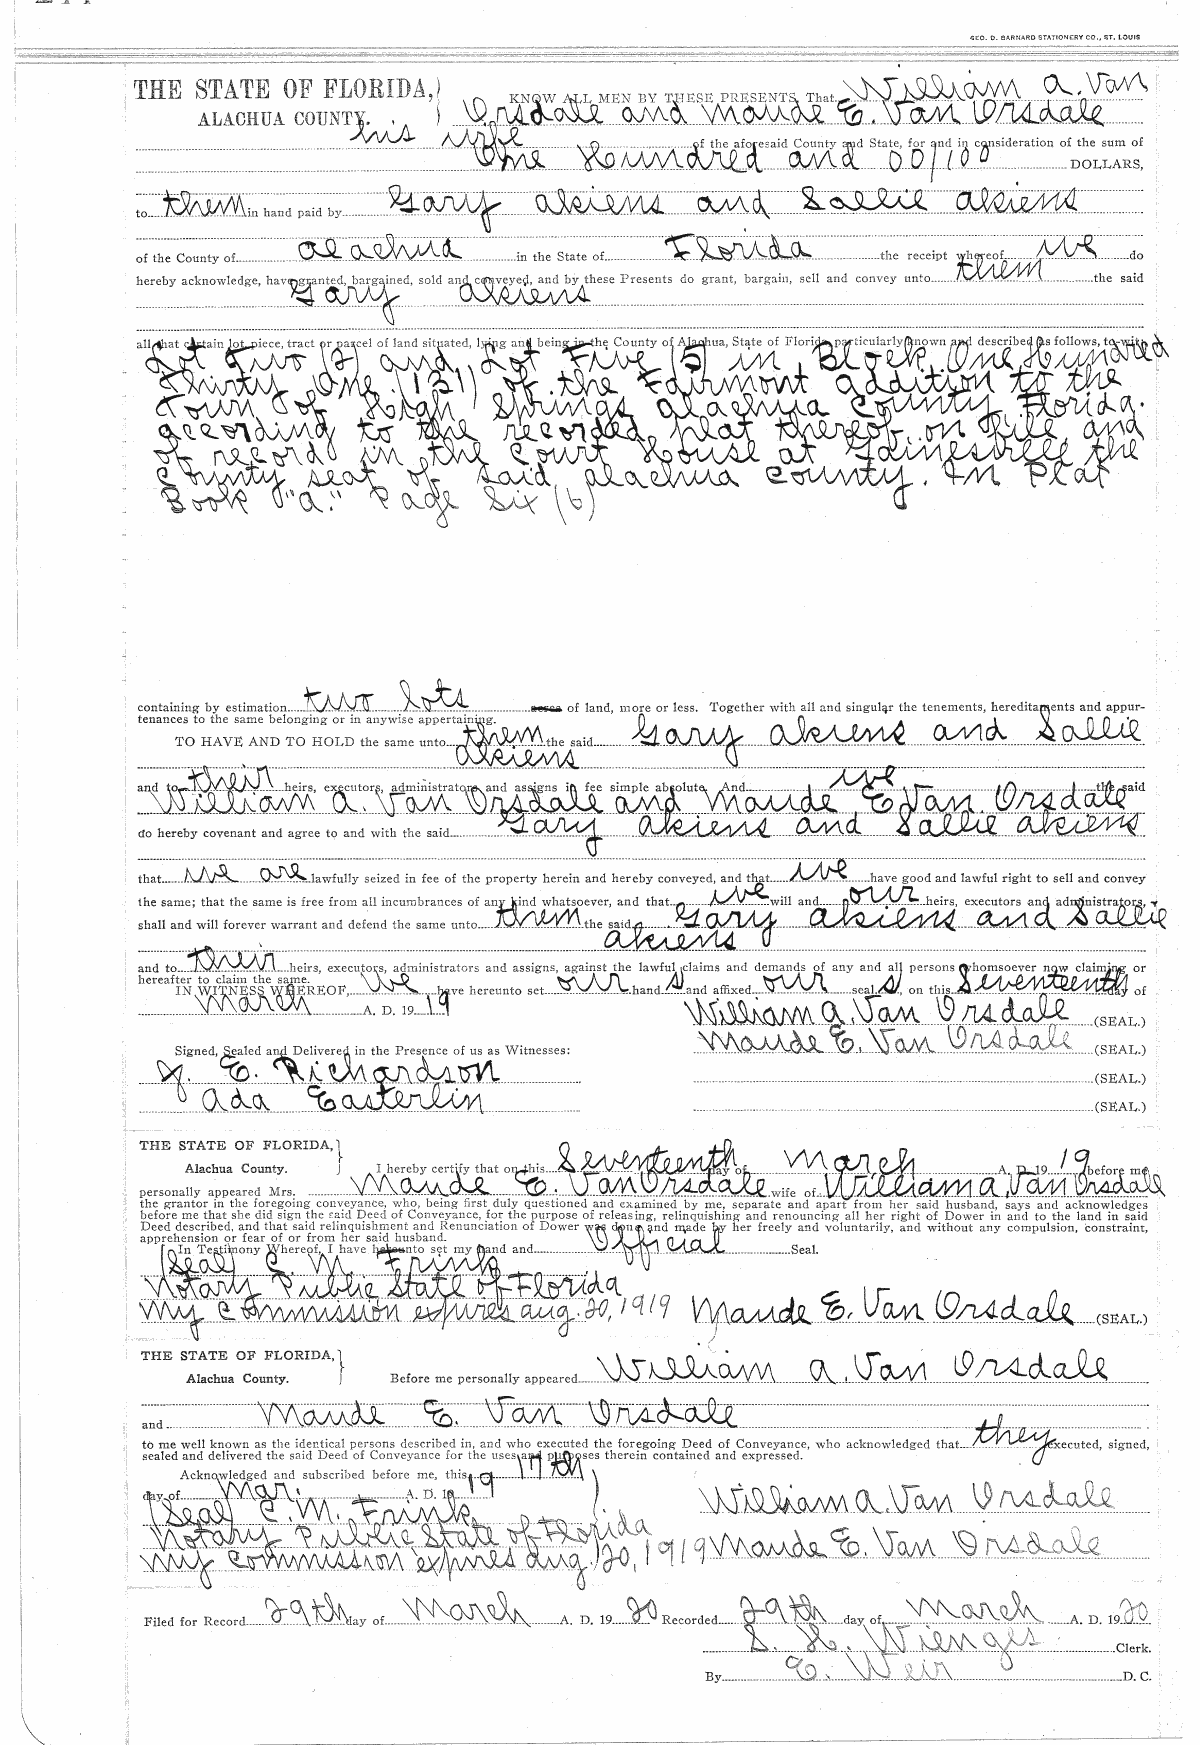 GEO. D. BARNARD STATIONERY CO., ST. LOUIS
THE STATE OF FLORIDA, KNOW ALL MEN BY THESE PRESENTS, That William A. Van
ALACHUA COUNTY. Orsdale and Maude E. Van Orsdale
his wife of the aforesaid County and State, for and in consideration of the sum of
One Hundred and 00/100 DOLLARS,
to them in hand paid by Gary Akiens and Sallie Akiens
of the County of Alachua in the State of Florida the receipt whereof we do
hereby acknowledge, have granted, bargained, sold and conveyed, and by these Presents do grant, bargain, sell and convey unto them the said
Gary Akiens
all that certain lot, piece, tract or parcel of land situated, lying and being in the County of Alachua, State of Florida, particularly known and described as follows, to-wit:
Lot Two (2) and Lot Five (5) in Block One Hundred
Thirty One (131) of the Fairmont addition to the
Town of High Springs Alachua County Florida.
according to the recorded plat thereof on file and
of record in the Court House at Gainesville the
County seat of said Alachua County. In Plat
Book "A." Page Six (6)
containing by estimation two lots acres of land, more or less. Together with all and singular the tenements, hereditaments and appur-
tenances to the same belonging or in anywise appertaining.
TO HAVE AND TO HOLD the same unto them the said Gary Akiens and Sallie
Akiens
and to their heirs, executors, administrators and assigns in fee simple absolute. And we the said
William A. Van Orsdale and Maude E. Van Orsdale
do hereby covenant and agree to and with the said Gary Akiens and Sallie Akiens
that we are lawfully seized in fee of the property herein and hereby conveyed, and that we have good and lawful right to sell and convey
the same; that the same is free from all incumbrances of any kind whatsoever, and that we will and our heirs, executors and administrators,
shall and will forever warrant and defend the same unto them the said Gary Akiens and Sallie
Akiens
and to their heirs, executors, administrators and assigns, against the lawful claims and demands of any and all persons whomsoever now claiming or
hereafter to claim the same.
IN WITNESS WHEREOF, we have hereunto set our hand s and affixed our seal s, on this Seventeenth day of
March A. D. 19 19
William A. Van Orsdale (SEAL.)
Maude E. Van Orsdale (SEAL.)
Signed, Sealed and Delivered in the Presence of us as Witnesses:
J. E. Richardson (SEAL.)
Ada Easterlin (SEAL.)
THE STATE OF FLORIDA,
Alachua County. I hereby certify that on this Seventeenth day of March A. D. 19 19 before me
personally appeared Mrs. Maude E. Van Orsdale wife of William A. Van Orsdale
the grantor in the foregoing conveyance, who, being first duly questioned and examined by me, separate and apart from her said husband, says and acknowledges
before me that she did sign the said Deed of Conveyance, for the purpose of releasing, relinquishing and renouncing all her right of Dower in and to the land in said
Deed described, and that said relinquishment and Renunciation of Dower was done and made by her freely and voluntarily, and without any compulsion, constraint,
apprehension or fear of or from her said husband.
In Testimony Whereof, I have hereunto set my hand and Official Seal.
(Seal) C. M. Frink
Notary Public State of Florida
My Commission expires Aug. 20, 1919 Maude E. Van Orsdale (SEAL.)
THE STATE OF FLORIDA,
Alachua County. Before me personally appeared William A. Van Orsdale
and Maude E. Van Orsdale
to me well known as the identical persons described in, and who executed the foregoing Deed of Conveyance, who acknowledged that they executed, signed,
sealed and delivered the said Deed of Conveyance for the uses and purposes therein contained and expressed.
Acknowledged and subscribed before me, this 17th
day of Mar. A. D. 19 19
(Seal) C. M. Frink William A. Van Orsdale
Notary Public State of Florida
My Commission expires Aug. 20, 1919 Maude E. Van Orsdale
Filed for Record 29th day of March A. D. 19 20 Recorded 29th day of March A. D. 19 20
S. H. Wienges Clerk.
By E. Weir D. C.